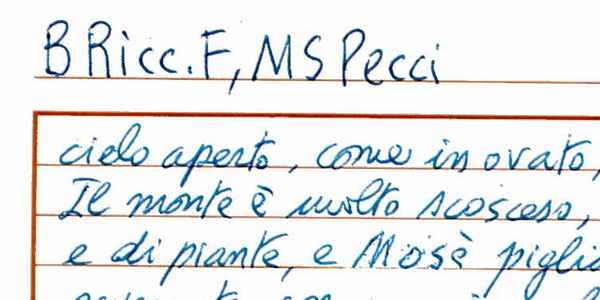 B Ricc. F, MS Pecci
cielo aperto, come in ovato,
Il monte è molto scosceso,
e di piante, e Mosè piglia